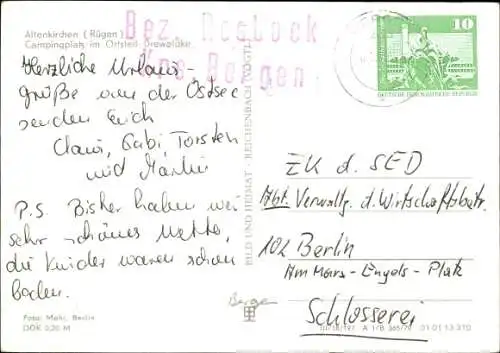 Altenkirchen (Rügen)
Campingplatz im Ortsteil Drewoldke
Bez. Rostock
Krs. Bergen
10
DEUTSCHE DEMOKRATISCHE REPUBLIK
Herzliche Urlaubs-
grüße von der Ostsee
senden Euch
Claus, Gabi, Torsten
und Martin
P.S. Bisher haben wir
sehr schönes Wetter,
die Kinder waren schon
baden.
Foto: Mohr, Berlin
DDR 0,20 M
BILD UND HEIMAT · REICHENBACH (VOGTL)
Bergen
ZK d. SED
Abt. Verwaltg. d. Wirtschaftsbetr.
102 Berlin
Am Marx-Engels-Platz
Schlosserei
A 1/B 365/79 01 01 13 310